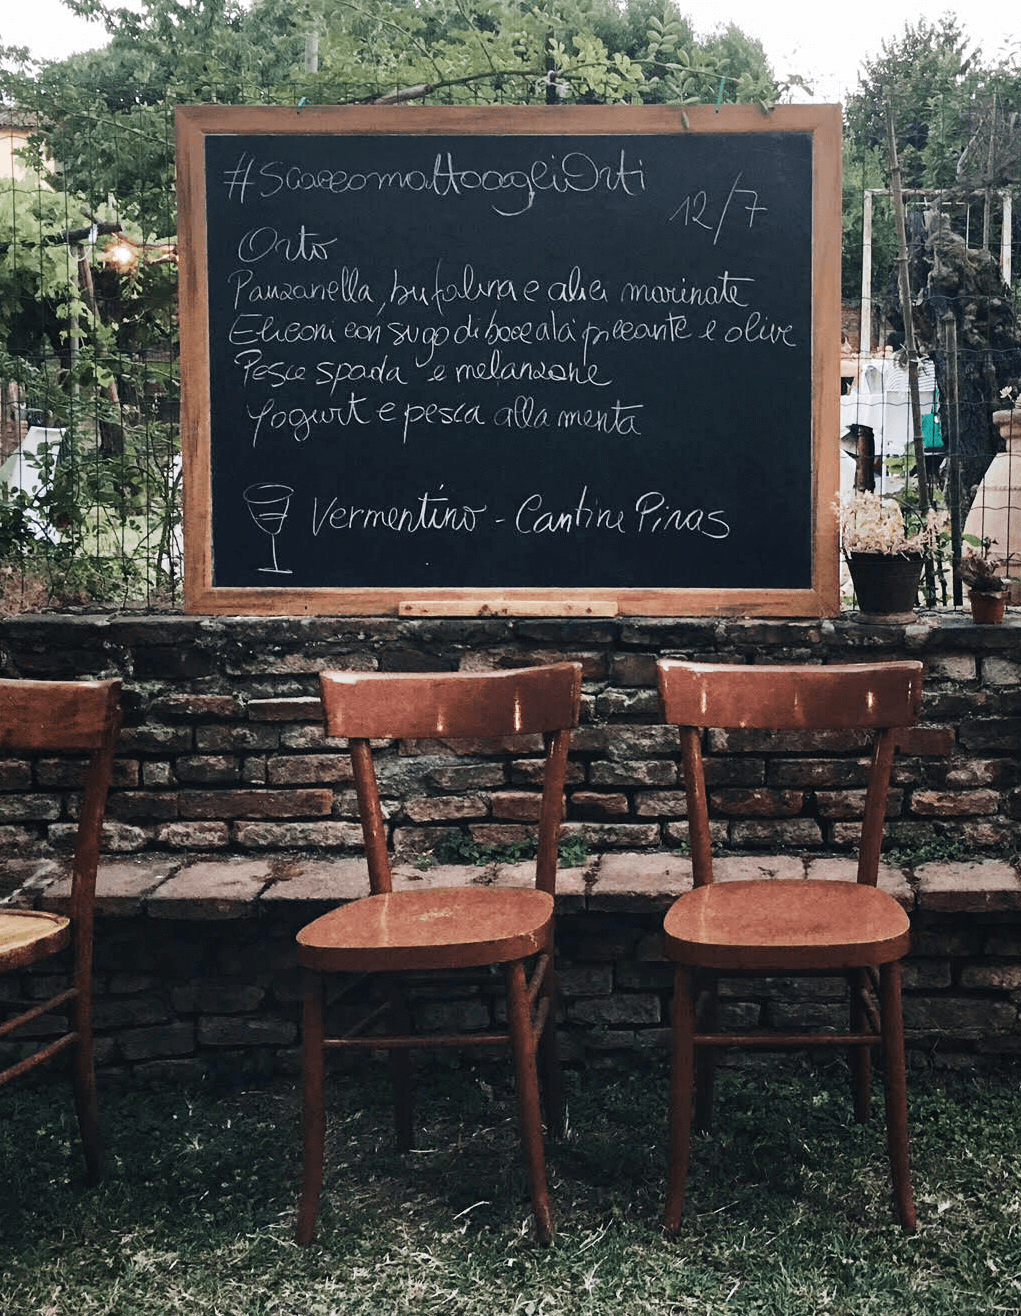 #ScaccomattoagliOrti
12/7
Orto
Panzanella, bufalina e alici marinate
Eliconi con sugo di baccalà piccante e olive
Pesce spada e melanzane
Yogurt e pesca alla menta
Vermentino - Cantine Piras